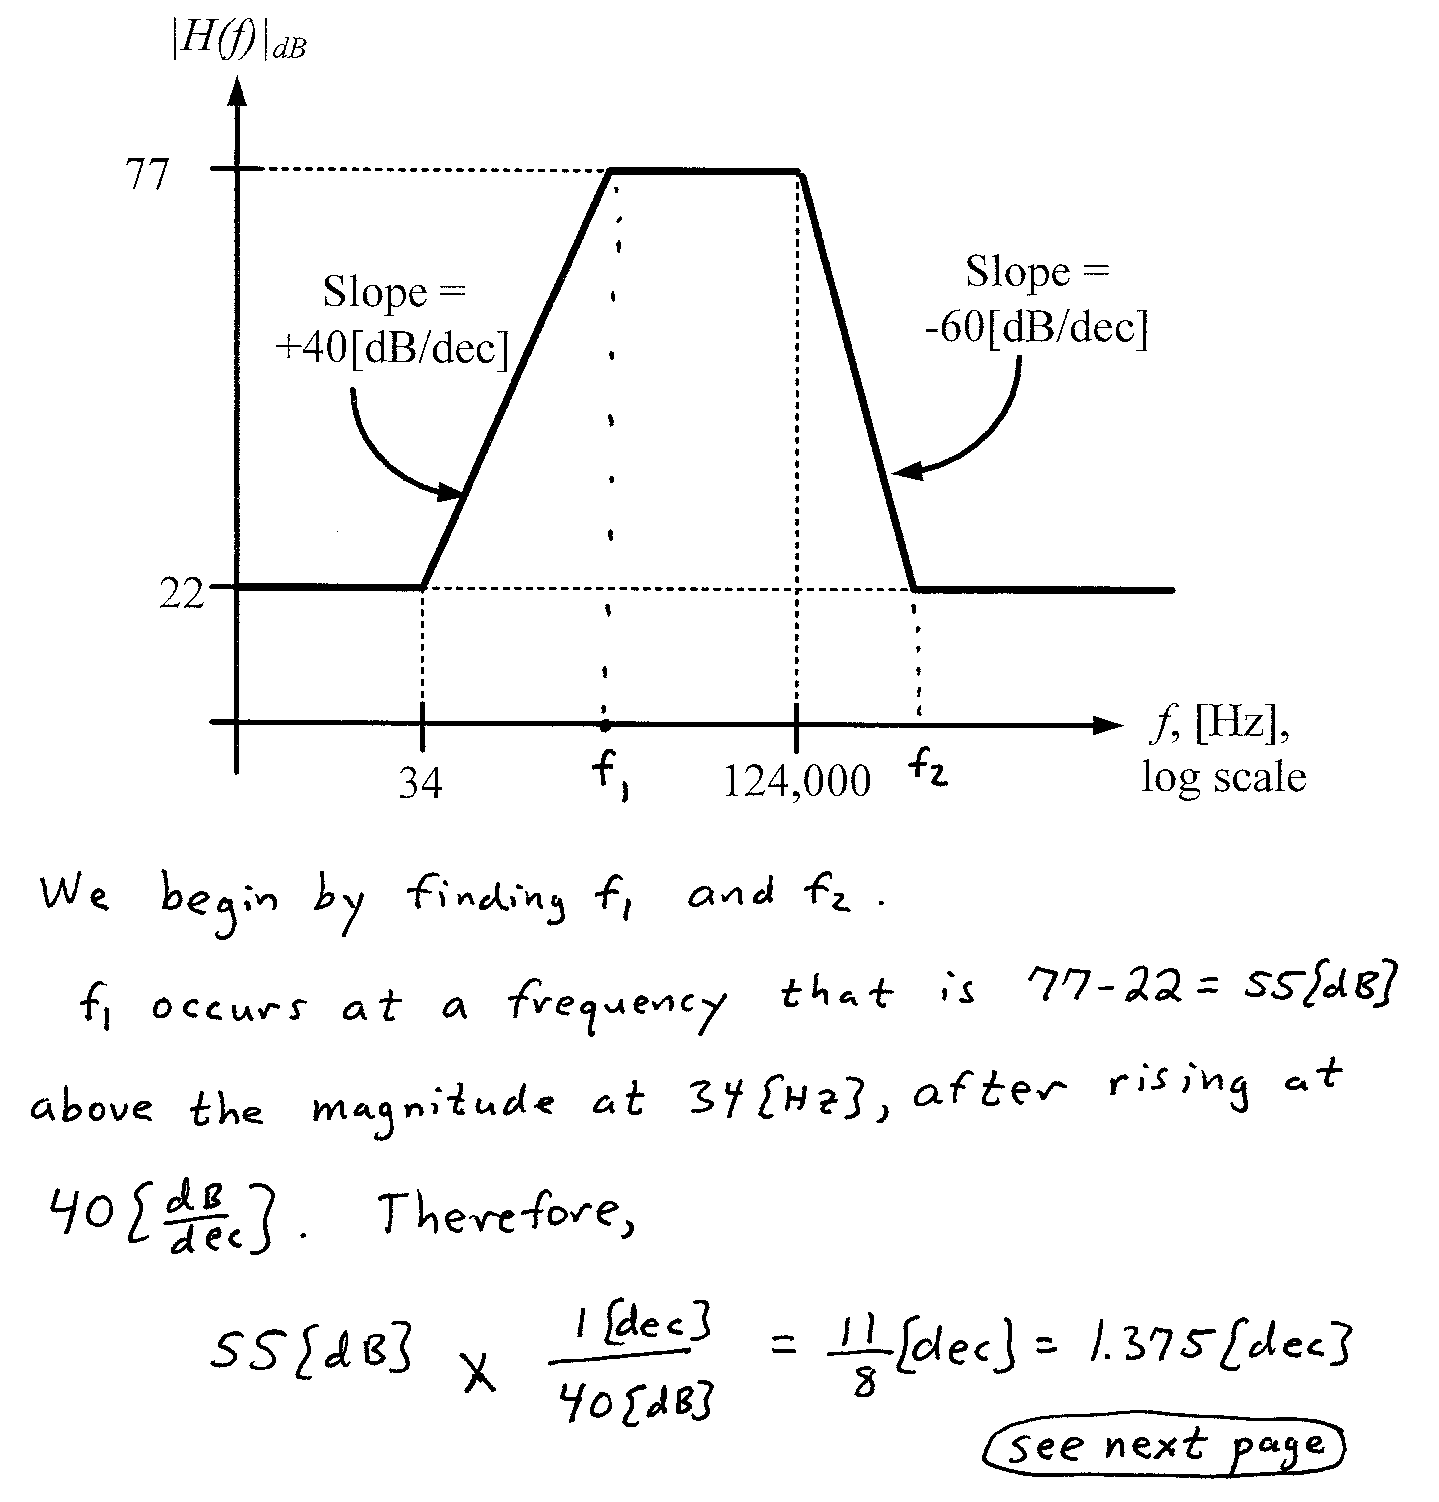 |H(f)|dB
77
Slope =
+40[dB/dec]
Slope =
-60[dB/dec]
22
34
f1
124,000
f2
f, [Hz],
log scale
We begin by finding f1 and f2.
f1 occurs at a frequency that is 77-22 = 55[dB]
above the magnitude at 34[Hz], after rising at
40[dB/dec]. Therefore,
55[dB] x 1[dec]/40[dB] = 11/8[dec] = 1.375[dec]
see next page